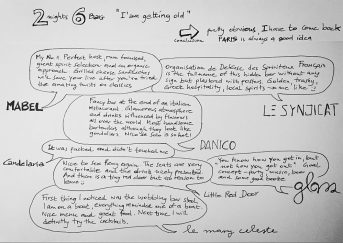 2 nights 6 Bars "I'm getting old"
pretty obvious I have to come back
conclusion PARIS is always a good idea
My No 1 Perfect bar, farm focused,
great spirit selection and an organic
approach. Grilled cheese sandwiches
will save your life after you've tried
the amazing twists on classics
MABEL
Organisation de Défense des Spiritueux Français
is the full name of this hidden bar without any
sign but plastered with posters. Golden, trashy,
Greek hospitality, local spirits - me like :)
LE SYNDICAT
Fancy bar at the end of an Italian
restaurant. Glamorous atmosphere
and drinks influenced by flavours
all over the world. Most handsome
bartenders although they look like
gondoliers. Nice
DANICO
It was packed and didn't
Candelaria
Nice to sea from again. The seats are very
comfortable and the drinks nicely presented.
And there is a tiny red door but no reason to
leave :)
Little Red Door
You know how you got in, but
not how you got out. Great
concept - party, music, beer
and some good booze
glass
First thing I noticed was the bubbling low stool.
I am on a boat, everything reminded me of a boat.
Nice menu and great food. Next time I will
definitely try the cocktails.
le mary celeste